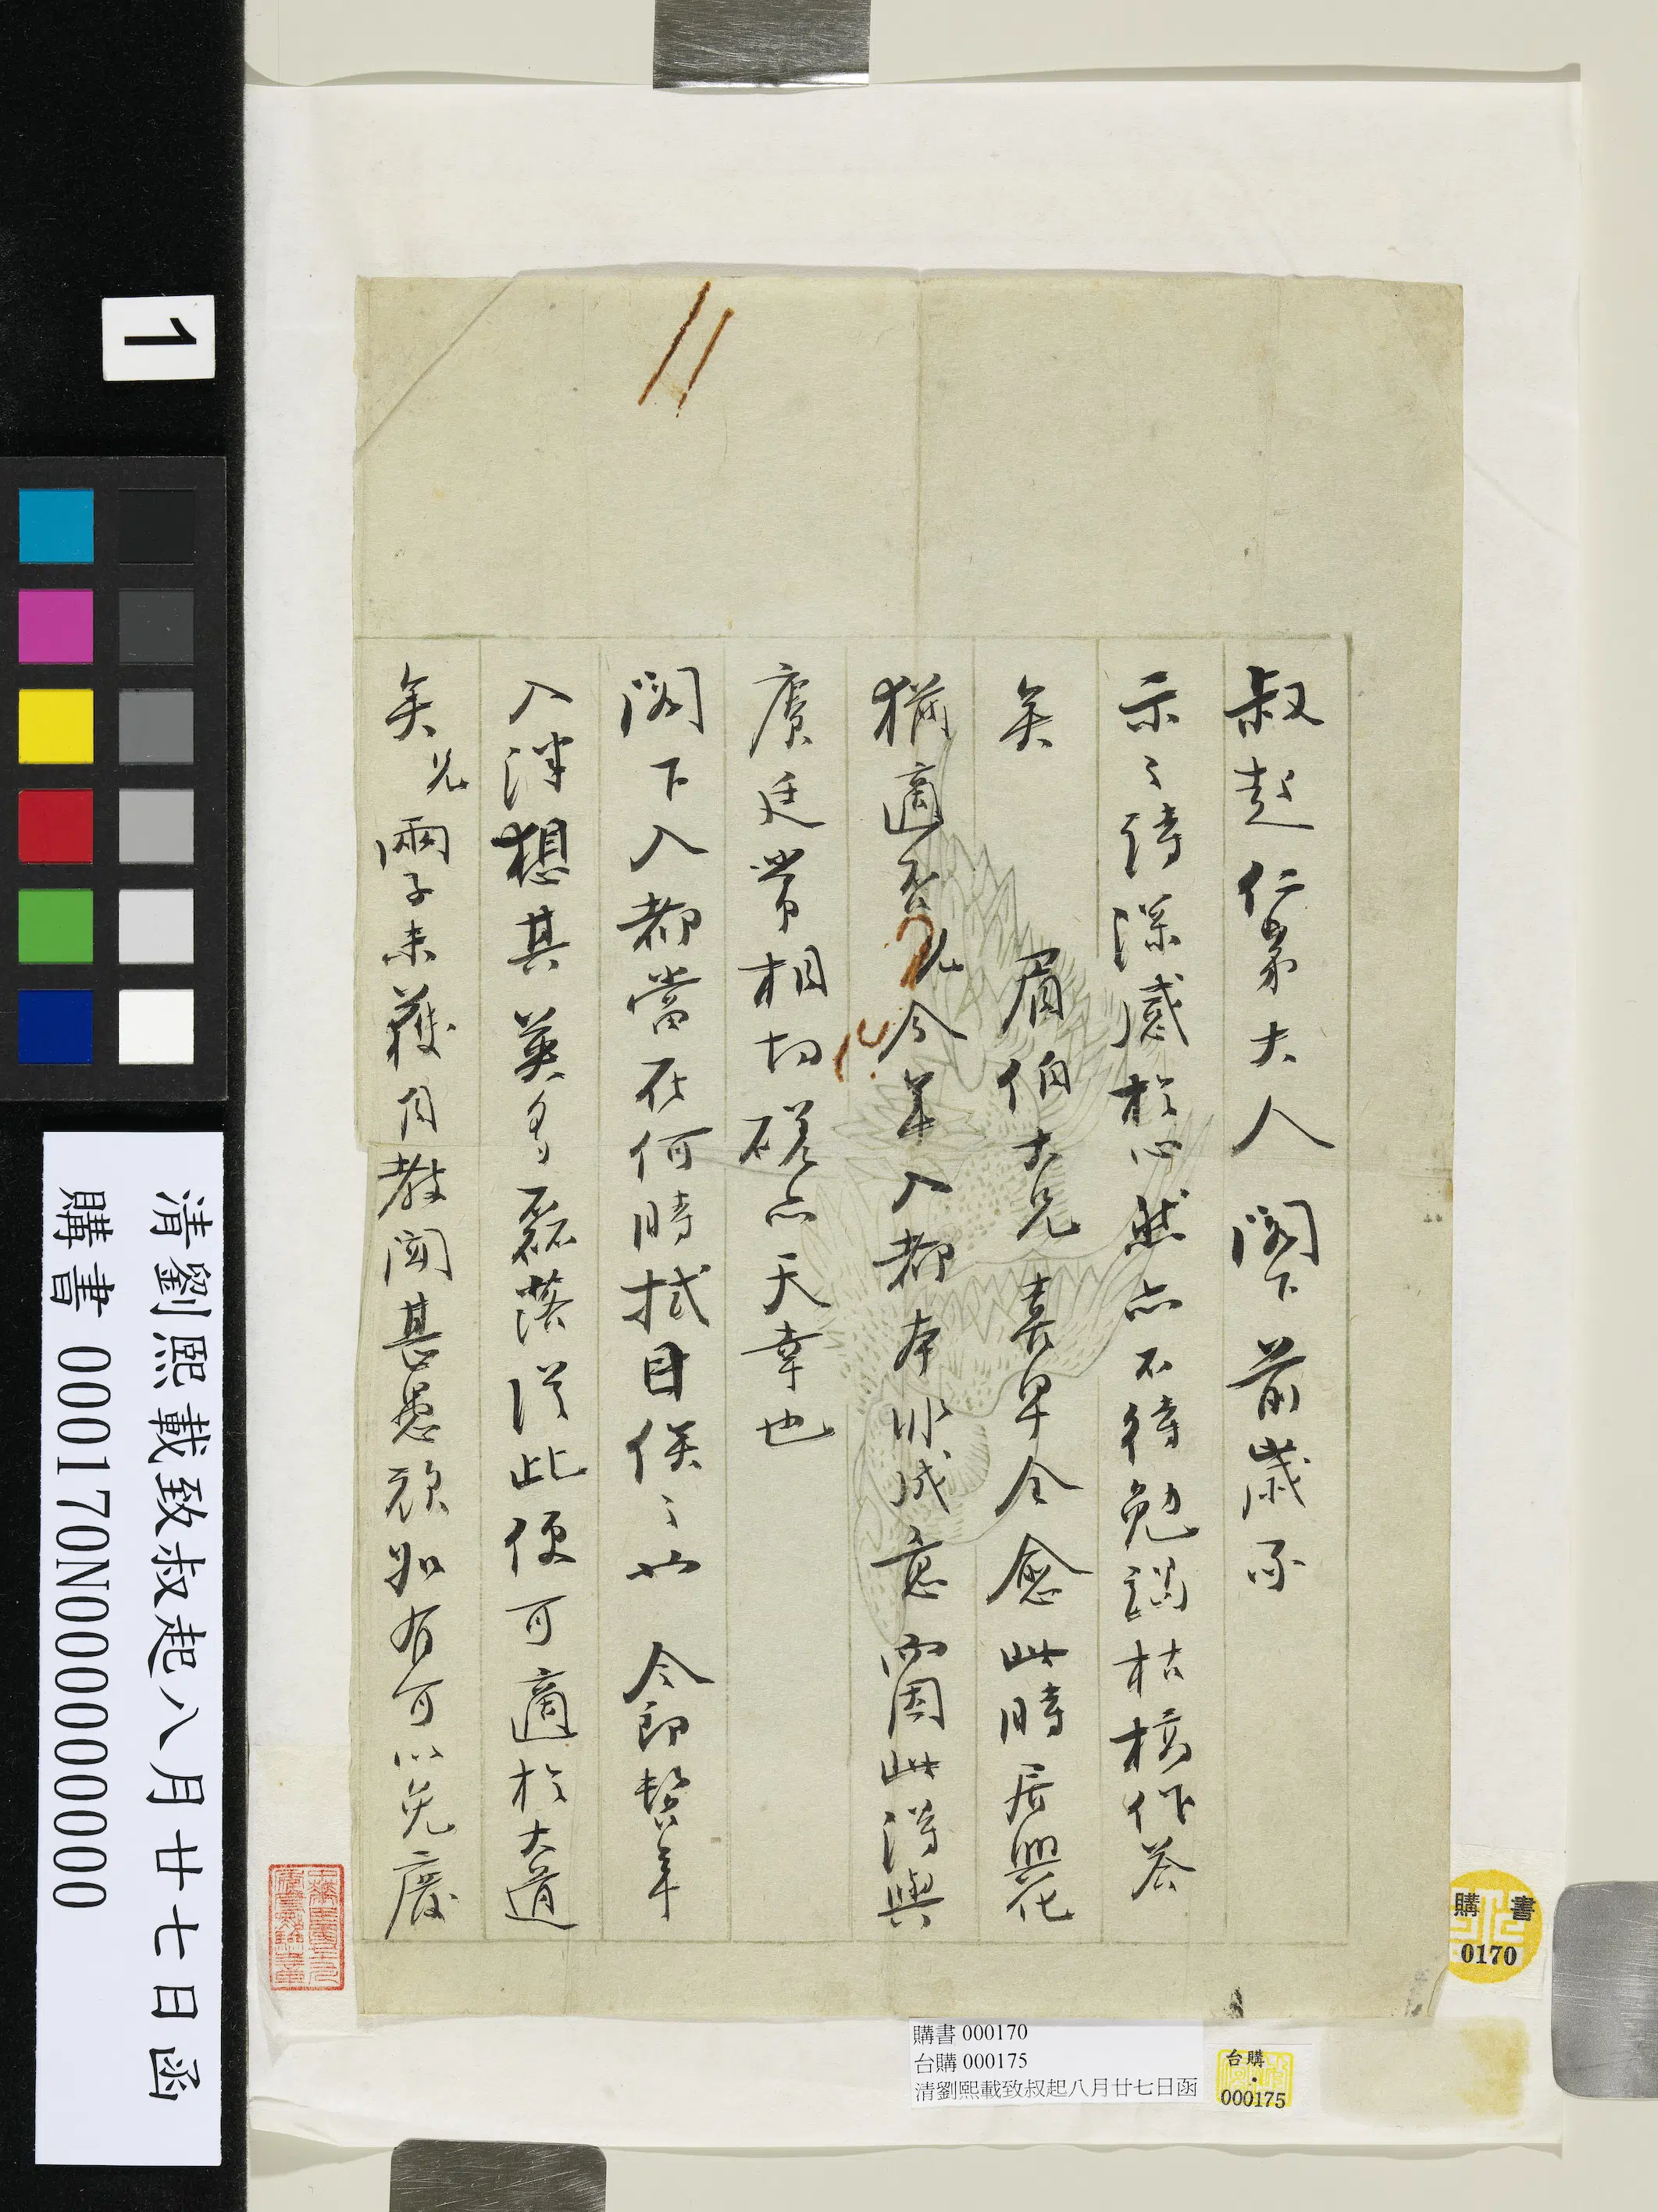 叔起仁弟大人閣下前歲承
示之詩深感於心然亦不待勉謁枯槁作答
矣 眉伯大兄喜早全愈此時居興化
猶適否兄今年入都本非成意爾因此得與
賡廷常相切磋亦天幸也
閣下入都當在何時拭目俟之 令郎暫年
入泮想其英多磊落從此便可適於大道
矣兄兩子未獲自教聞甚愚頑如有可以免廢
1
清劉熙載致叔起八月廿七日函
購書 000170N000000000
購書 000170
台購 000175
清劉熙載致叔起八月廿七日函
台購
000175
購書
0170